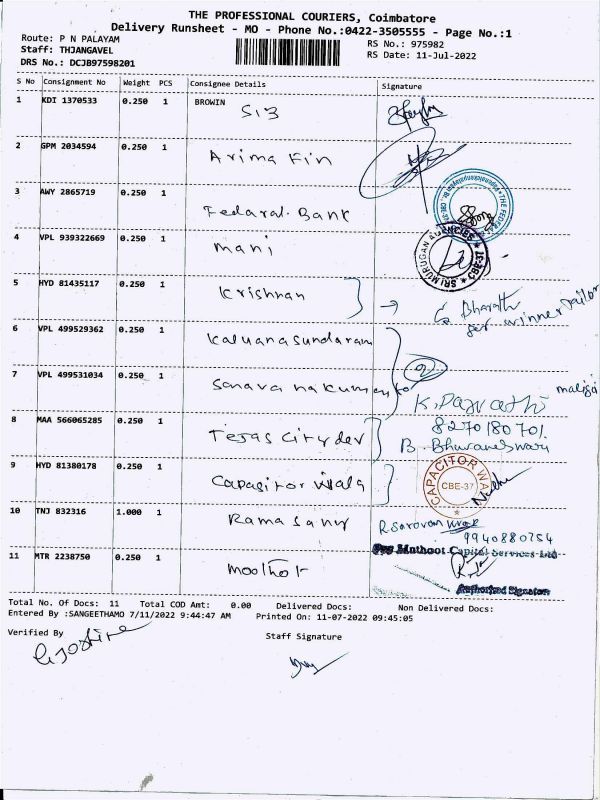 THE PROFESSIONAL COURIERS, Coimbatore
Delivery Runsheet - MO - Phone No.:0422-3505555 - Page No.:1
Route: P N PALAYAM
RS No.: 975982
Staff: THJANGAVEL
RS Date: 11-Jul-2022
DRS No.: DCJB97598201
S No Consignment No Weight PCS Consignee Details Signature
1 KDI 1370533 0.250 1 BROWIN
SIB
2 GPM 2034594 0.250 1 Arima Fin
3 AWY 2865719 0.250 1 Federal. Bank
THE FEDERAL
4 VPL 939322669 0.250 1 mani
SRI MURUGAN AGENCIES CBE-37
5 HYD 81435117 0.250 1 Krishnan
Bharath
6 VPL 499529362 0.250 1 Kaluanasundaram
7 VPL 499531034 0.250 1
K. Parvathi
8270180701
8 MAA 566065285 0.250 1 Tejas City dev
B. Bhuvaneshwari
9 HYD 81380178 0.250 1 Capacitor Wala
CAPACITOR WA CBE-37
10 TNJ 832316 1.000 1 Ramasamy
R Saravan
9940880754
For Muthoot Capital Services Ltd
11 MTR 2238750 0.250 1 moothot
Authorised Signatory
Total No. Of Docs: 11 Total COD Amt: 0.00 Delivered Docs: Non Delivered Docs:
Entered By :SANGEETHAMO 7/11/2022 9:44:47 AM Printed On: 11-07-2022 09:45:05
Verified By
Staff Signature